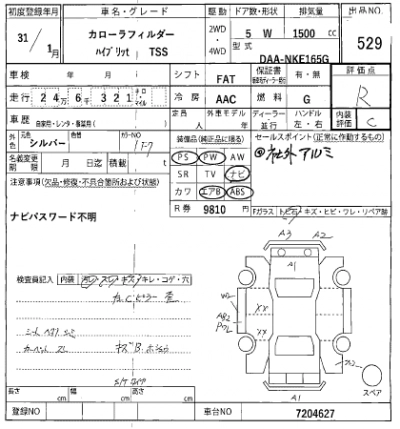 初度登録年月 車名・グレード 駆動 ドア数・形状 排気量 出品NO.
31/1月 カローラフィルダー ハイブリット TSS 2WD・4WD 5 W 1500cc 529
型式 DAA-NKE165G
車検 年 月 シフト FAT 保証書 有・無 評価点 R
走行 24万6千321 キロ・マイル 冷房 AAC 燃料 G
車歴 自家用・レンタ・事業用( ) 定員 人 外車モデル 年 ディーラー 並行 ハンドル 左・右 内装評価 C
外色 元色 シルバー 色替 カラーNO 1F7
装備品(純正品に限る) セールスポイント(正常に作動するもの)
PS PW AW @社外アルミ
名義変更期限 月 日迄 積載 t
SR TV ナビ
注意事項(欠品・修復・不具合箇所および状態)
カワ エアB ABS
R券 9810円
ナビパスワード不明
Fガラス トビ石・キズ・ヒビ・ワレ・リペア跡
A3 A2
A1
検査員記入 内装 ヨゴレ・スレ・キズ・キレ・コゲ・穴
XX
XX
シート
A1
スペア
長さ cm 幅 cm 高さ cm
登録NO 車台NO 7204627